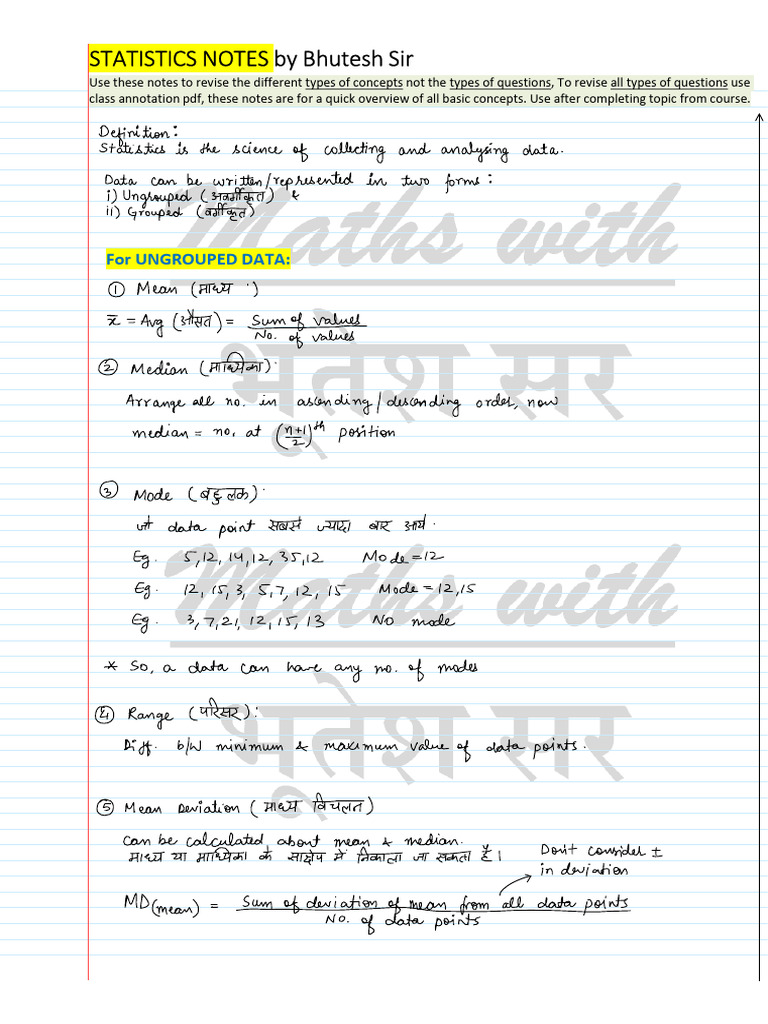 STATISTICS NOTES by Bhutesh Sir
Use these notes to revise the different types of concepts not the types of questions, To revise all types of questions use
class annotation pdf, these notes are for a quick overview of all basic concepts. Use after completing topic from course.
Definition:
Statistics is the science of collecting and analysing data.
Data can be written/represented in two forms:
i) Ungrouped (अवर्गीकृत) &
ii) Grouped (वर्गीकृत)
Maths with
For UNGROUPED DATA:
① Mean (माध्य)
x̄ = Avg (औसत) = Sum of values
No. of values
भूतेश सर
② Median (माध्यिका):
Arrange all no. in ascending/descending order, now
median = no. at (n+1/2)th position
③ Mode (बहुलक):
जो data point सबसे ज्यादा बार आये.
Eg. 5,12,14,12,35,12 Mode=12
Maths with
Eg. 12, 15, 3, 5,7, 12, 15 Mode = 12,15
Eg. 3,7,21, 12, 15, 13 No mode
* So, a data can have any no. of modes
④ Range (परिसर):
भूतेश सर
Diff. b/w minimum & maximum value of data points.
⑤ Mean Deviation (माध्य विचलत)
can be calculated about mean & median.
माध्य या माध्यिका के सापेक्ष में निकाला जा सकता है।
Don't consider ±
in deviation
MD(mean) = Sum of deviation of mean from all data points
No. of data points